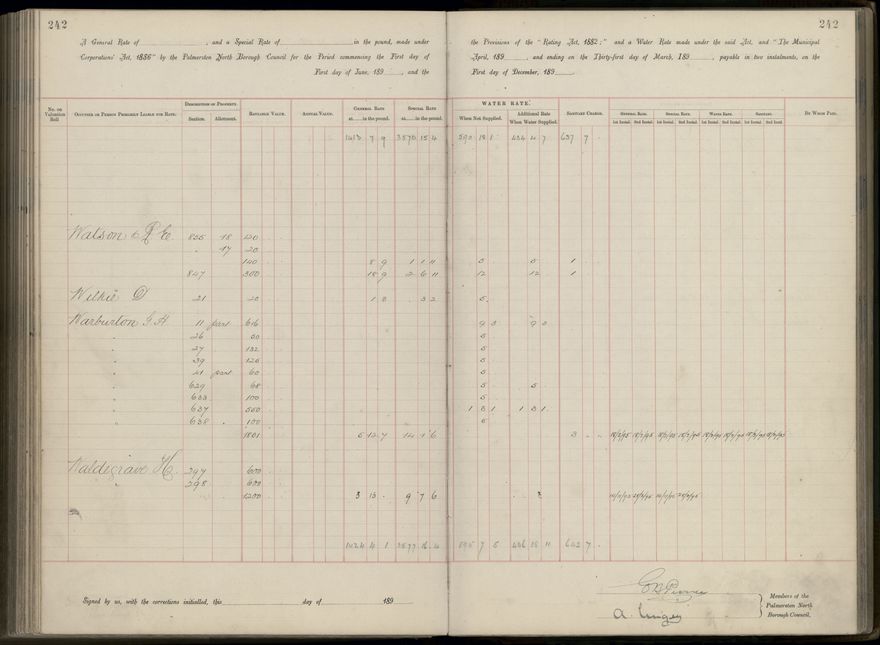 242
242
A General Rate of , and a Special Rate of in the pound, made under the Provisions of the "Rating Act, 1882;" and a Water Rate made under the said Act, and "The Municipal
Corporations' Act, 1886" by the Palmerston North Borough Council for the Period commencing the First day of April, 189 , and ending on the Thirty-first day of March, 189 , payable in two instalments, on the
First day of June, 189 , and the First day of December, 189 .
No. on Valuation Roll
Occupier or Person Primarily Liable for Rate.
Description of Property.
Section. Allotment.
Rateable Value.
Annual Value.
General Rate at in the pound.
Special Rate at in the pound.
WATER RATE.
When Not Supplied.
Additional Rate When Water Supplied.
Sanitary Charge.
General Rate. Special Rate. Water Rate. Sanitary.
1st Instal. 2nd Instal. 1st Instal. 2nd Instal. 1st Instal. 2nd Instal. 1st Instal. 2nd Instal.
By Whom Paid.
1413 7 9 3570 15 4 590 18 1 434 4 7 637 7
Watson 855 18 120
17 20
140 8 9 1 1 11 5 5 1
847 300 18 9 2 6 11 12 12 1
Wilkie D 21 20 1 3 3 2 5
Warburton G H 11 part 616 9 3 9 3
26 50 5
27 132 5
39 125 5
41 part 60 5
629 68 5 5
633 100 5
637 550 1 3 1 1 3 1
638 100 5
1801 5 12 7 14 1 6 3
Waldegrave H 297 600
298 600
1200 3 15 9 7 6
1424 4 1 3597 16 4 595 7 5 436 15 11 642 7
Signed by us, with the corrections initialled, this day of 189
Members of the
Palmerston North
Borough Council.